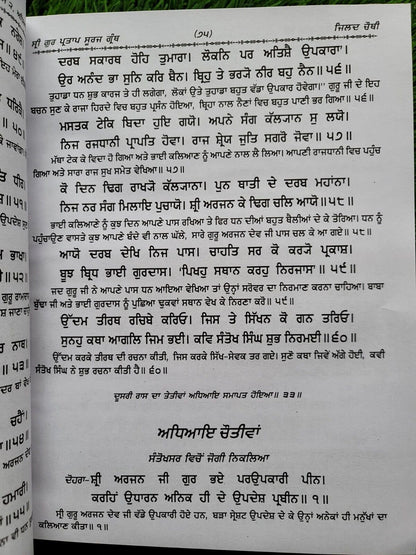 ਸ੍ਰੀ ਗੁਰ ਪ੍ਰਤਾਪ ਸੂਰਜ ਗ੍ਰੰਥ (੭੫) ਜਿਲਦ ਚੌਥੀ
ਦਰਬ ਸਕਾਰਥ ਹੋਹਿ ਤੁਮਾਰਾ। ਲੋਕਨਿ ਪਰ ਅਤਿਸ਼ੈ ਉਪਕਾਰਾ।
ਉਰ ਅਨੰਦ ਭਾ ਸੁਨਿ ਕਰਿ ਬੈਨ। ਬ੍ਰਿਹੁ ਤੇ ਭਰ੍ਯੋ ਨੀਰ ਬਹੁ ਨੈਨ॥੫੬॥
ਤੁਹਾਡਾ ਧਨ ਸ਼ੁਭ ਕਾਰਜ ਤੇ ਹੀ ਲਗੇਗਾ, ਲੋਕਾਂ ਉਤੇ ਤੁਹਾਡਾ ਬਹੁਤ ਵੱਡਾ ਉਪਕਾਰ ਹੋਵੇਗਾ।” ਗੁਰੂ ਜੀ ਦੇ ਇਹ
ਬਚਨ ਸੁਣ ਕੇ ਰਾਜਾ ਹਿਰਦੇ ਵਿਚ ਬਹੁਤ ਪ੍ਰਸੰਨ ਹੋਇਆ, ਬ੍ਰਿਹਾ ਨਾਲ ਨੈਣਾਂ ਵਿਚ ਬਹੁਤ ਪਾਣੀ ਭਰ ਗਿਆ॥੫੬॥
ਮਸਤਕ ਟੇਕਿ ਬਿਦਾ ਹੁਇ ਗਯੋ। ਅਪਨੇ ਸੰਗ ਕੱਲ੍ਯਾਨ ਸੁ ਲਯੋ।
ਨਿਜ ਰਜਧਾਨੀ ਪ੍ਰਾਪਤਿ ਹੋਵਾ। ਰਾਜ ਸ਼੍ਰੇਯ ਜੁਤਿ ਸਗਰੋ ਜੋਵਾ॥੫੭॥
ਮੱਥਾ ਟੇਕ ਕੇ ਵਿਦਾ ਹੋ ਗਿਆ ਅਤੇ ਭਾਈ ਕਲਿਆਣ ਨੂੰ ਆਪਣੇ ਨਾਲ ਲੈ ਲਿਆ। ਆਪਣੀ ਰਾਜਧਾਨੀ ਵਿਚ ਪਹੁੰਚ
ਗਿਆ ਅਤੇ ਸਾਰਾ ਰਾਜ ਸੁਖ ਸਮੇਤ ਵੇਖਿਆ॥੫੭॥
ਕੋ ਦਿਨ ਢਿਗ ਰਾਖ੍ਯੋ ਕੱਲ੍ਯਾਨਾ। ਪੁਨ ਥਾਤੀ ਦੇ ਦਰਬ ਮਹਾਂਨਾ।
ਨਿਜ ਨਰ ਸੰਗ ਮਿਲਾਇ ਪੁਚਾਯੋ। ਸ਼੍ਰੀ ਅਰਜਨ ਕੇ ਢਿਗ ਚਲਿ ਆਯੋ॥੫੮॥
ਭਾਈ ਕਲਿਆਣੇ ਨੂੰ ਕੁਝ ਦਿਨ ਆਪਣੇ ਪਾਸ ਰਖਿਆ ਤੇ ਫਿਰ ਧਨ ਦੀਆਂ ਬਹੁਤ ਥੈਲੀਆਂ ਦੇ ਕੇ ਤੋਰਿਆ। ਧਨ ਨੂੰ
ਪਹੁੰਚਾਉਣ ਵਾਸਤੇ ਕੁਝ ਆਪਣੇ ਬੰਦੇ ਵੀ ਨਾਲ ਘੱਲੇ, ਸਾਰੇ ਗੁਰੂ ਅਰਜਨ ਦੇਵ ਜੀ ਪਾਸ ਚਲ ਕੇ ਆ ਗਏ॥੫੮॥
ਆਯੋ ਦਰਬ ਦੇਖਿ ਨਿਜ ਪਾਸ। ਚਾਹਤਿ ਸਰ ਕੋ ਕਰ੍ਯੋ ਪ੍ਰਕਾਸ਼।
ਬੂਝ ਬ੍ਰਿਧ ਭਾਈ ਗੁਰਦਾਸ। ‘ਪਿਖਹੁ ਸਥਾਨ ਕਰਹੁ ਨਿਰਜਾਸ’॥੫੯॥
ਜਦ ਗੁਰੂ ਜੀ ਨੇ ਆਪਣੇ ਪਾਸ ਧਨ ਆਇਆ ਵੇਖਿਆ ਤਾਂ ਉਨ੍ਹਾਂ ਸਰੋਵਰ ਦਾ ਨਿਰਮਾਣ ਕਰਨਾ ਚਾਹਿਆ। ਬਾਬਾ
ਬੁੱਢਾ ਜੀ ਅਤੇ ਭਾਈ ਗੁਰਦਾਸ ਨੂੰ ਪੁਛਿਆ ਢੁਕਵਾਂ ਸਥਾਨ ਵੇਖ ਕੇ ਨਿਰਣਾ ਕਰੋ॥੫੯॥
ਉੱਦਮ ਤੀਰਥ ਰਚਿਬੇ ਕਰਿਓ। ਜਿਸ ਤੇ ਸਿੱਖਨ ਕੋ ਗਨ ਤਰਿਓ।
ਸੁਨਹੁ ਕਥਾ ਆਗਲਿ ਜਿਮ ਭਈ। ਕਵਿ ਸੰਤੋਖ ਸਿੰਘ ਸ਼ੁਭ ਨਿਰਮਈ॥੬੦॥
ਉੱਦਮ ਕਰਕੇ ਤੀਰਥ ਦੀ ਰਚਨਾ ਕੀਤੀ, ਜਿਸ ਕਰਕੇ ਸਿੱਖ-ਸੇਵਕ ਤਰ ਗਏ। ਸੁਣੋ ਕਥਾ ਜਿਵੇਂ ਅੱਗੇ ਹੋਈ, ਕਵੀ
ਸੰਤੋਖ ਸਿੰਘ ਨੇ ਸ਼ੁਭ ਰਚਨਾ ਕੀਤੀ ਹੈ॥੬੦॥
ਦੂਸਰੀ ਰਾਸ ਦਾ ਤੇਤੀਵਾਂ ਅਧਿਆਇ ਸਮਾਪਤ ਹੋਇਆ॥੩੩॥
ਅਧਿਆਇ ਚੌਤੀਵਾਂ
ਸੰਤੋਖਸਰ ਵਿਚੋਂ ਜੋਗੀ ਨਿਕਲਿਆ
ਦੋਹਰਾ- ਸ਼੍ਰੀ ਅਰਜਨ ਜੀ ਗੁਰ ਭਏ ਪਰਉਪਕਾਰੀ ਪੀਨ।
ਕਰਹਿਂ ਉਧਾਰਨ ਅਨਿਕ ਹੀ ਦੇ ਉਪਦੇਸ਼ ਪ੍ਰਬੀਨ॥੧॥
ਸ਼੍ਰੀ ਗੁਰੂ ਅਰਜਨ ਦੇਵ ਜੀ ਵੱਡੇ ਉਪਕਾਰੀ ਹੋਏ ਹਨ, ਬੜਾ ਸ੍ਰੇਸ਼ਟ ਉਪਦੇਸ਼ ਦੇ ਕੇ ਉਨ੍ਹਾਂ ਅਨੇਕਾਂ ਹੀ ਮਨੁੱਖਾਂ ਦਾ
ਕਲਿਆਣ ਕੀਤਾ॥੧॥